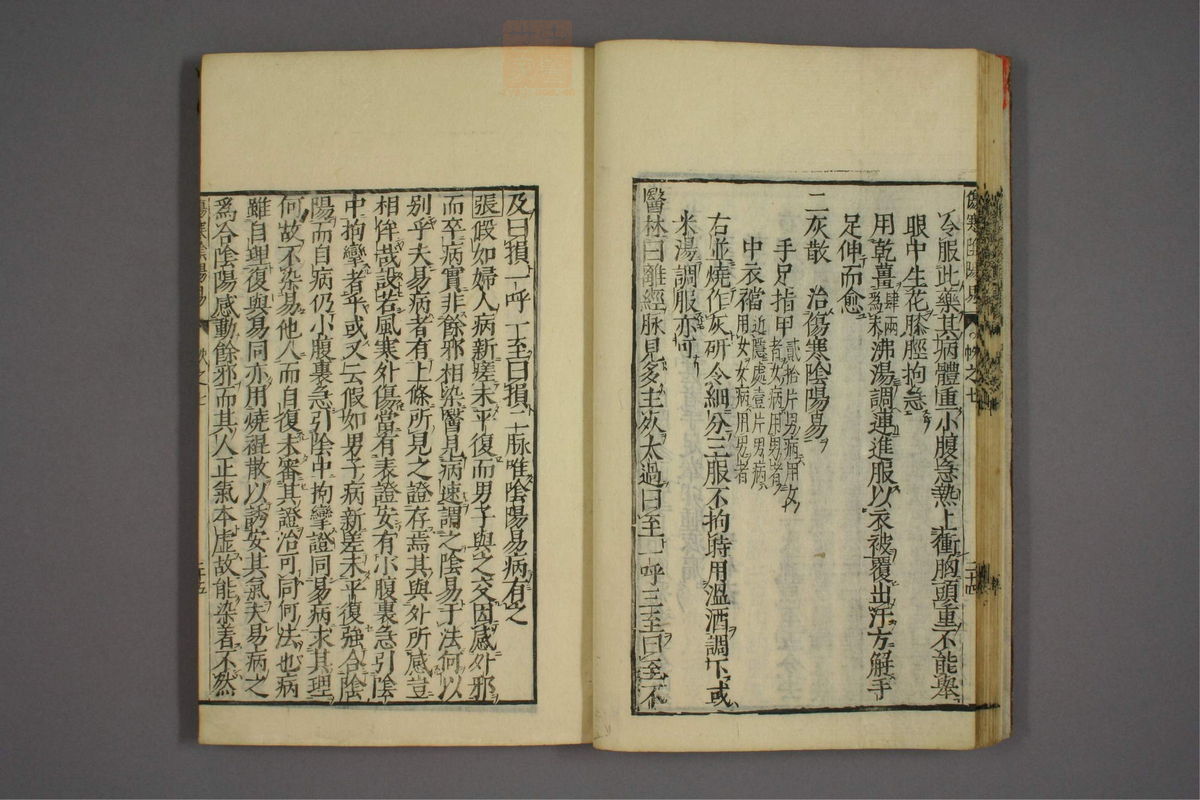 傷寒陰陽易 卷之七 二十四
冷服此藥其病體重小腹急熱上衝胸頭重不能舉
眼中生花膝脛拘急
用乾薑肆兩爲末沸湯調連進服以衣被覆出汗方解手
足伸而愈
二灰散 治傷寒陰陽易
手足指甲貳拾片男病用女者女病用男者
中衣襠近隱處壹片男病用女女病用男者
右並燒作灰研令細分三服不拘時用溫酒調下或
米湯調服亦可
醫林曰離經脉見多主死太過曰至一呼三至曰至不
及曰損一呼一至曰損二脉唯陰陽易病有之
張假如婦人病新瘥未平復而男子與之交因感外邪
而卒病實非餘邪相染醫見病速謂之陰易于法何以
別乎夫易病者有上條所見之證存焉其與外所感豈
相侔哉設若風寒外傷當有表證安有小腹裏急引陰
中拘攣者乎或又云假如男子病新差未平復強合陰
陽而自病仍小腹裏急引陰中拘攣證同易病求其理
何故不染易他人而自復未審其證治可同何法也病
雖自理復與易同亦用燒裩散以誘安其氣夫易病之
爲合陰陽感動餘邪而其人正氣本虛故能染著不然
傷寒陰陽易 卷之七 二十五